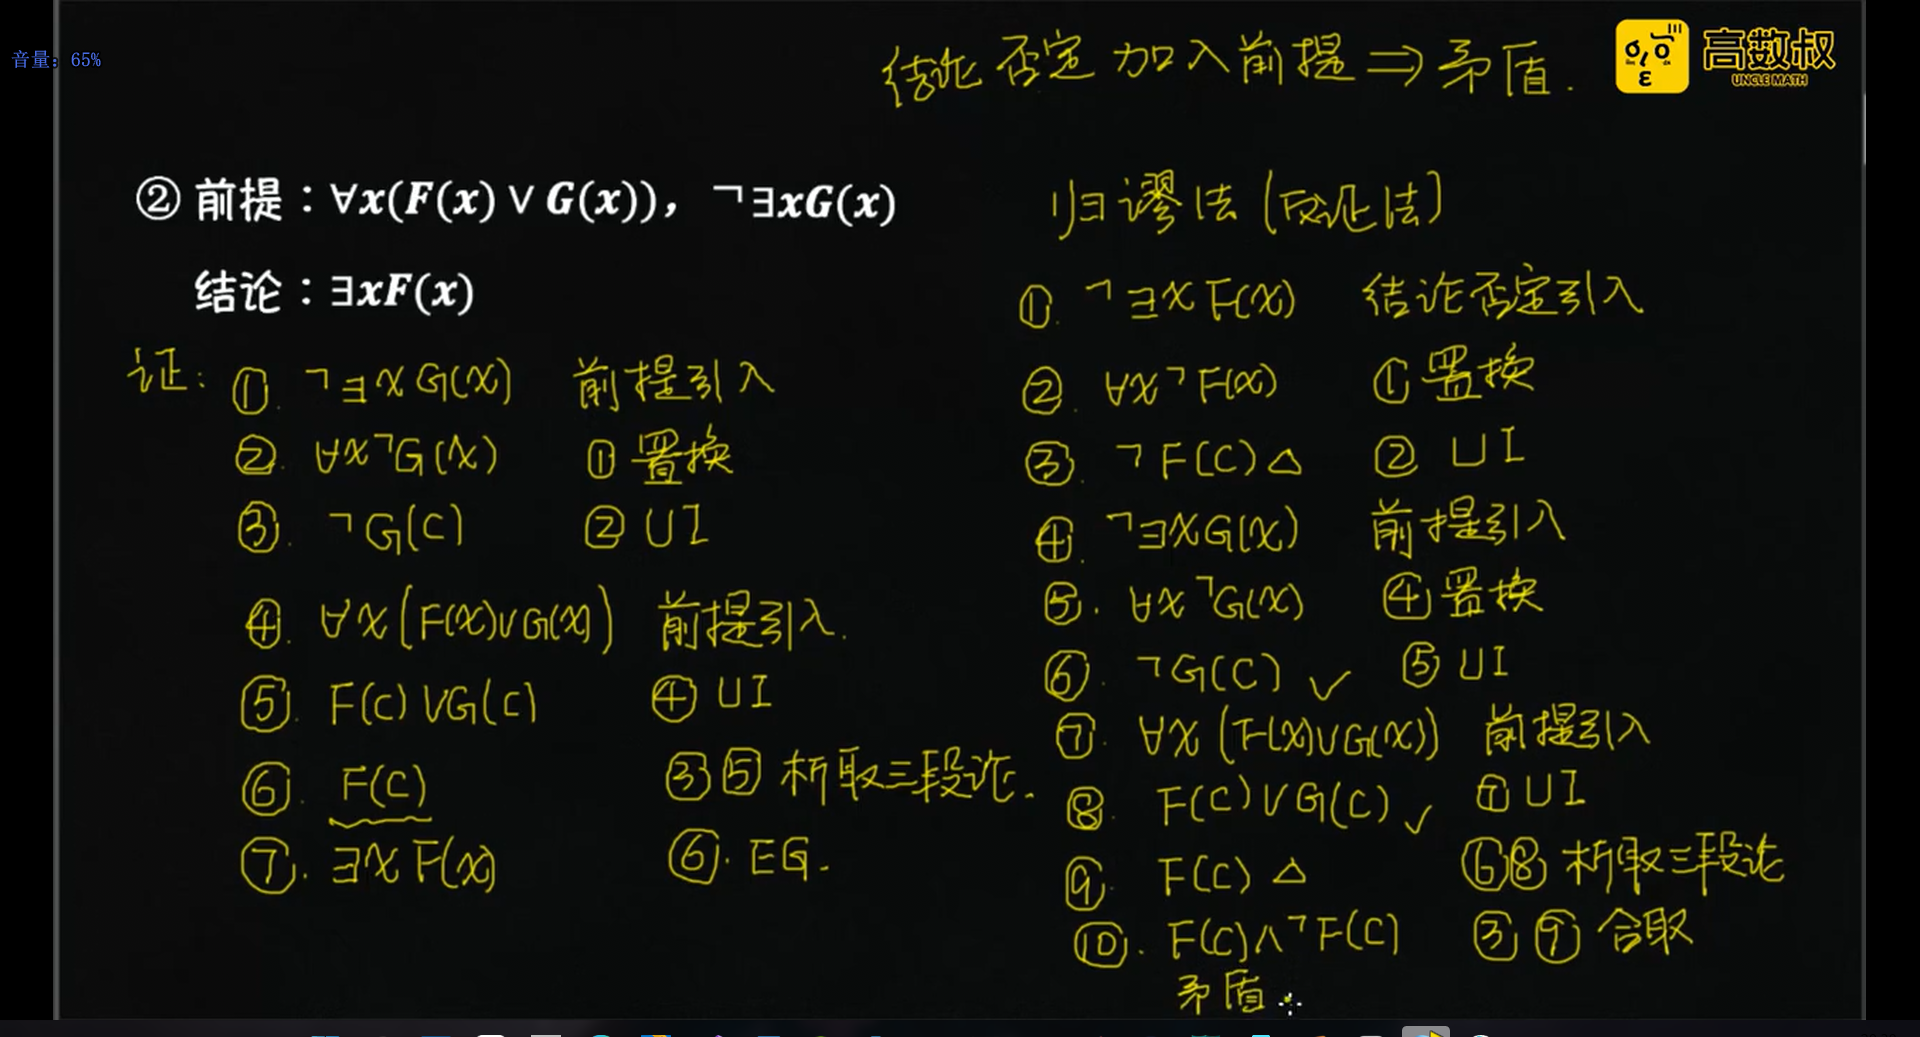 音量：65%
结论否定加入前提⇒矛盾.
高数叔
UNCLE MATH
② 前提：∀x(F(x) ∨ G(x))，¬∃xG(x)
结论：∃xF(x)
证：
①. ¬∃xG(x) 前提引入
②. ∀x¬G(x) ①置换
③. ¬G(c) ②UI
④. ∀x(F(x)∨G(x)) 前提引入.
⑤. F(c)∨G(c) ④UI
⑥. F(c) ③⑤析取三段论.
⑦. ∃xF(x) ⑥. EG.
归谬法(反证法)
①. ¬∃xF(x) 结论否定引入
②. ∀x¬F(x) ①置换
③. ¬F(c)△ ② UI
④. ¬∃xG(x) 前提引入
⑤. ∀x¬G(x) ④置换
⑥. ¬G(c) ✓ ⑤UI
⑦. ∀x(F(x)∨G(x)) 前提引入
⑧. F(c)∨G(c) ✓ ⑦UI
⑨. F(c)△ ⑥⑧析取三段论
⑩. F(c)∧¬F(c) ③⑨合取
矛盾.